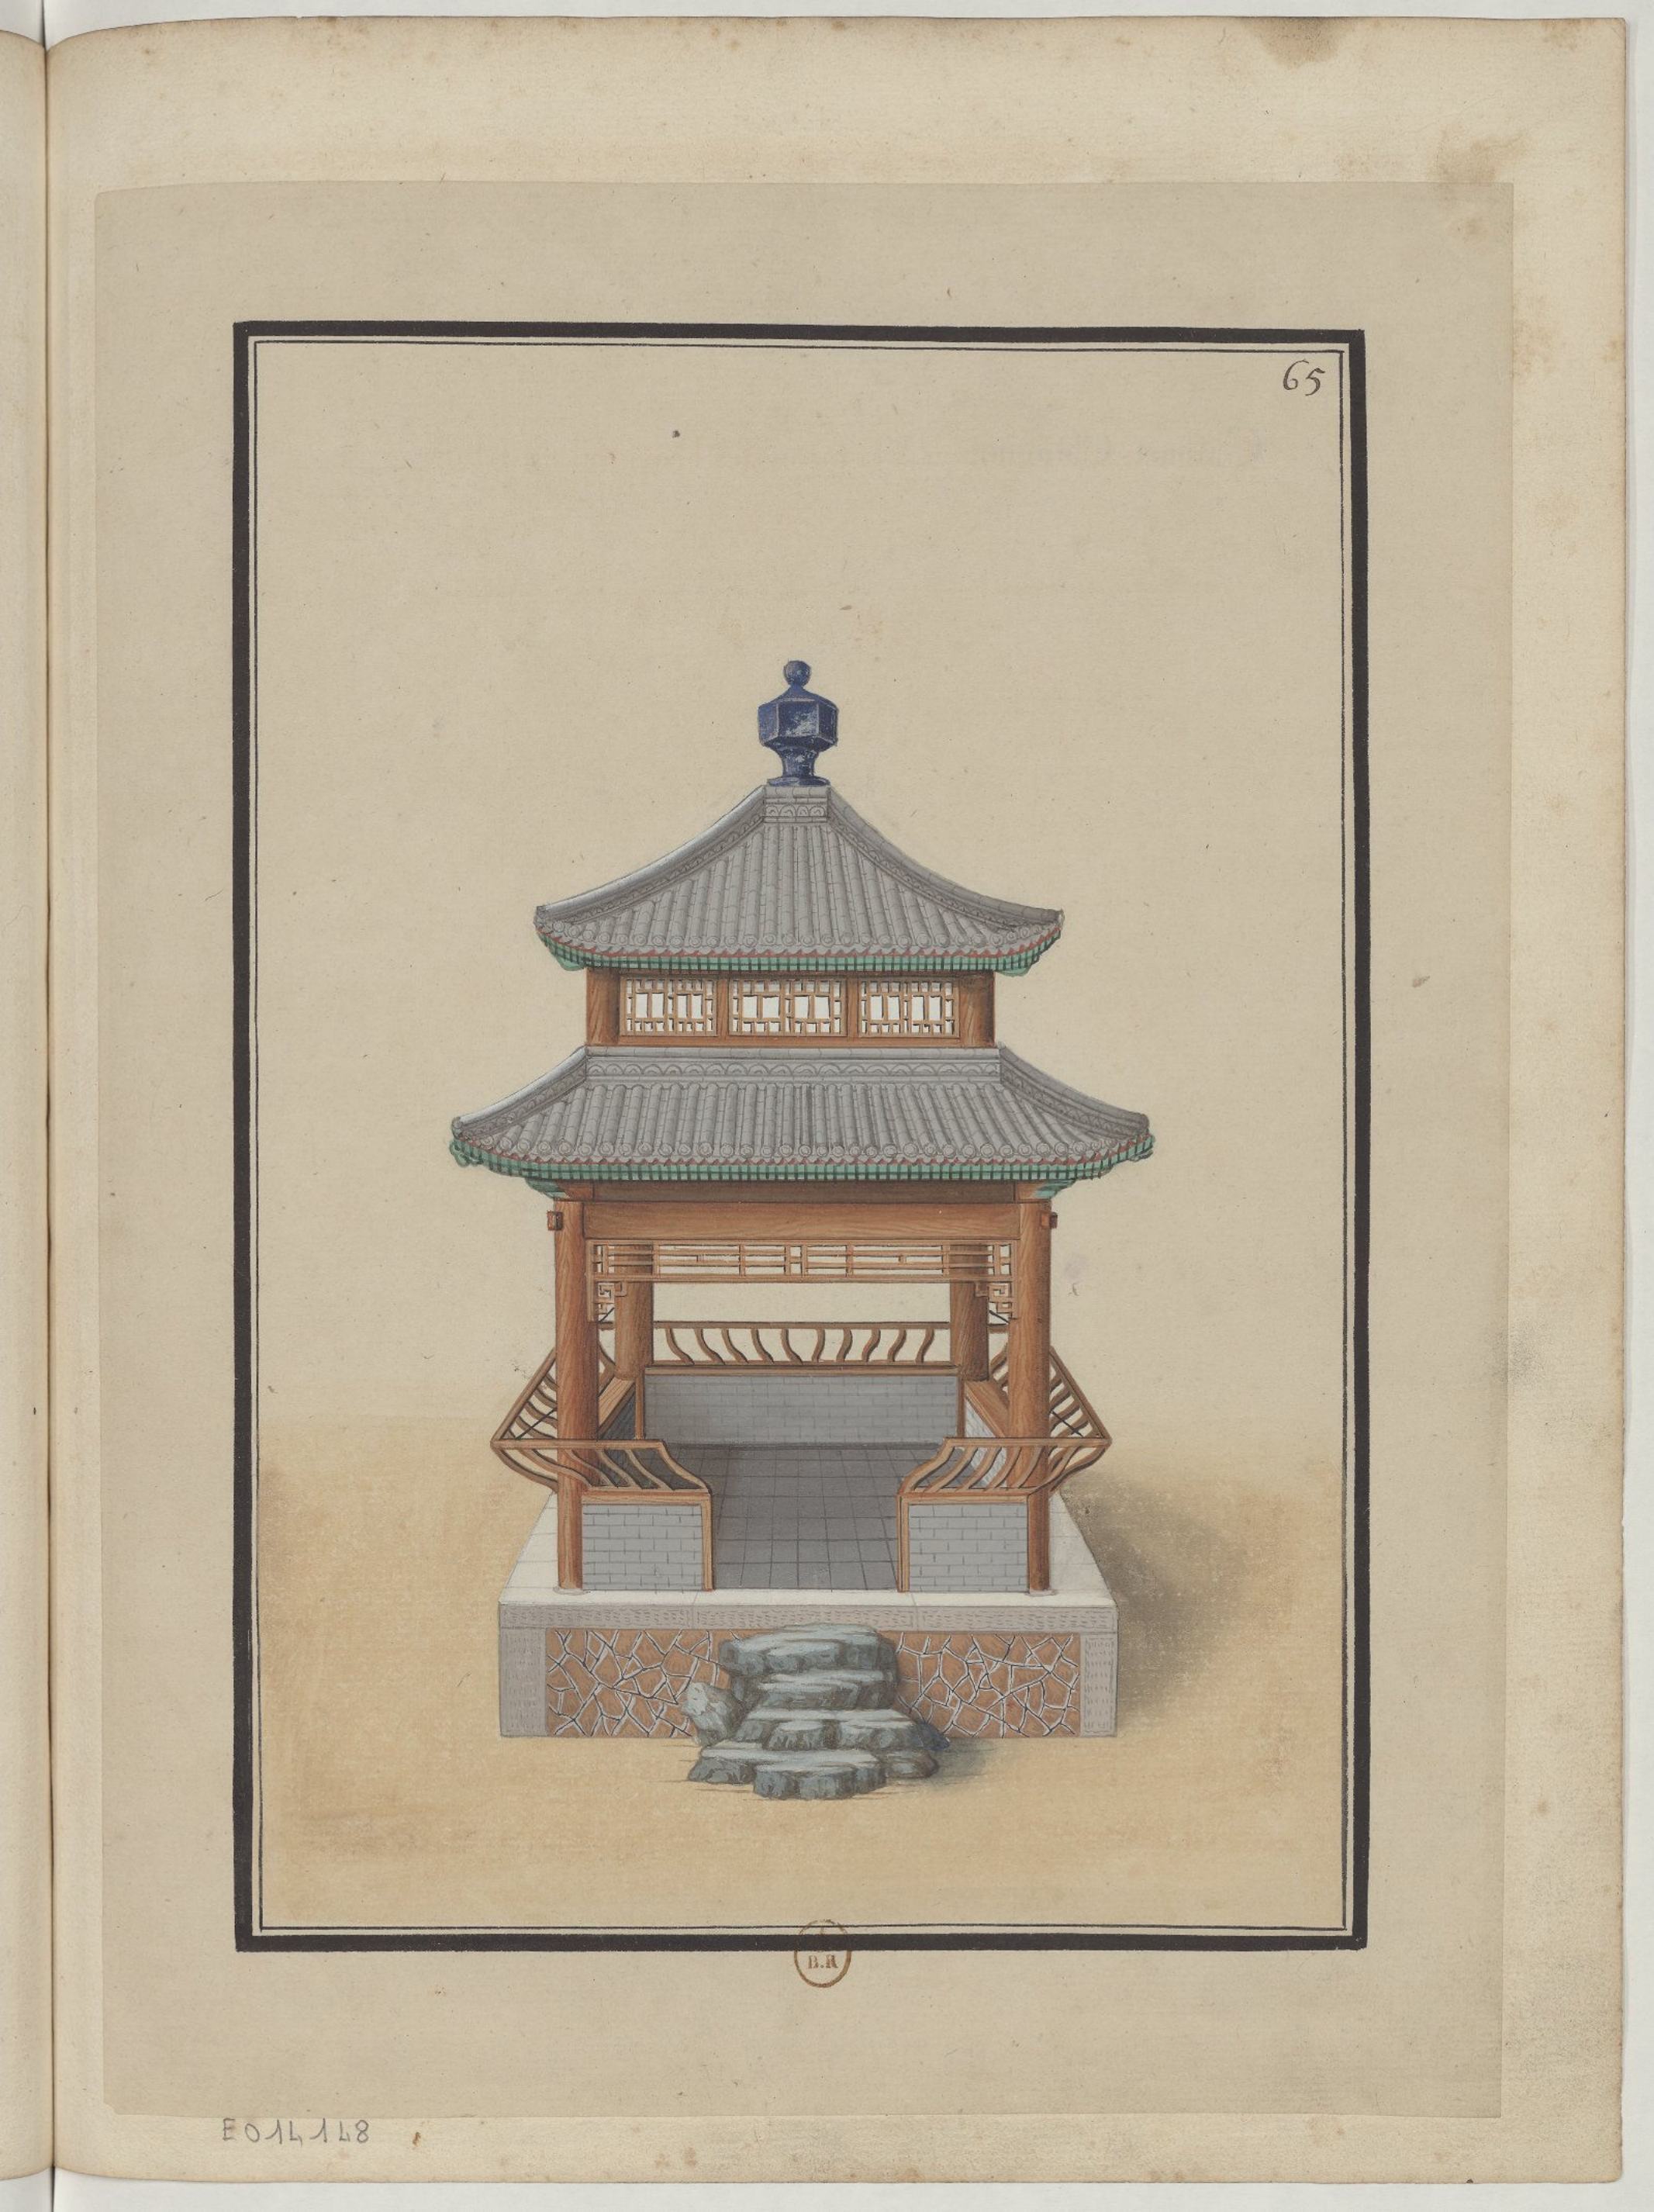 65
B.R
E014148